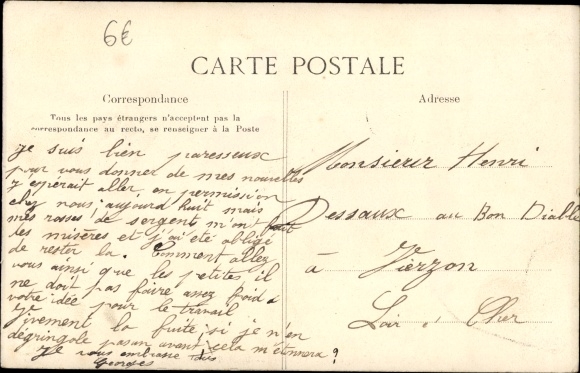 6€
CARTE POSTALE
Correspondance
Adresse
Tous les pays étrangers n'acceptent pas la
correspondance au recto, se renseigner à la Poste
Je suis bien paresseux
pour vous donner de mes nouvelles
J'éperait aller en permission
chez nous aujourd huit mais
mes rosses de sergent m'ont fait
les misères et j'ai été obligé
de rester la. Comment allez
vous ainsi que les petites il
ne doit pas faire assez froid a
votre idée pour le travail
Vivement la fuite, si je n'en
dégringole pas avant cela m'etonnera ?
Je vous embrasse tous
Georges
Monsieur Henri
Dessaux au Bon Diable
à Vierzon
Loir et Cher